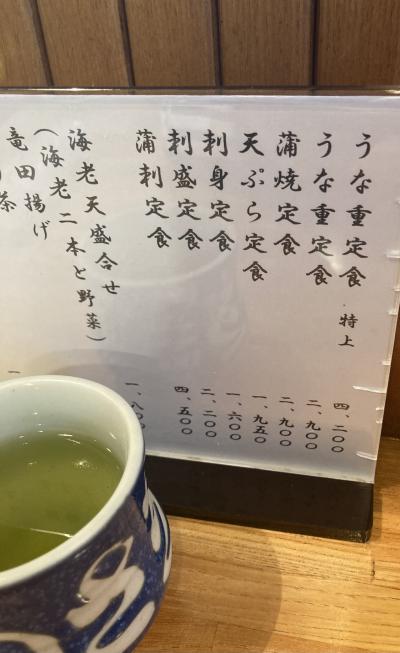 うな重定食・特上 四、二〇〇
うな重定食 二、九〇〇
蒲焼定食 二、九〇〇
天ぷら定食 一、九五〇
刺身定食 一、六〇〇
刺盛定食 二、二〇〇
蒲刺定食 四、五〇〇
海老天盛合せ 一、八〇〇
(海老二本と野菜)
竜田揚げ